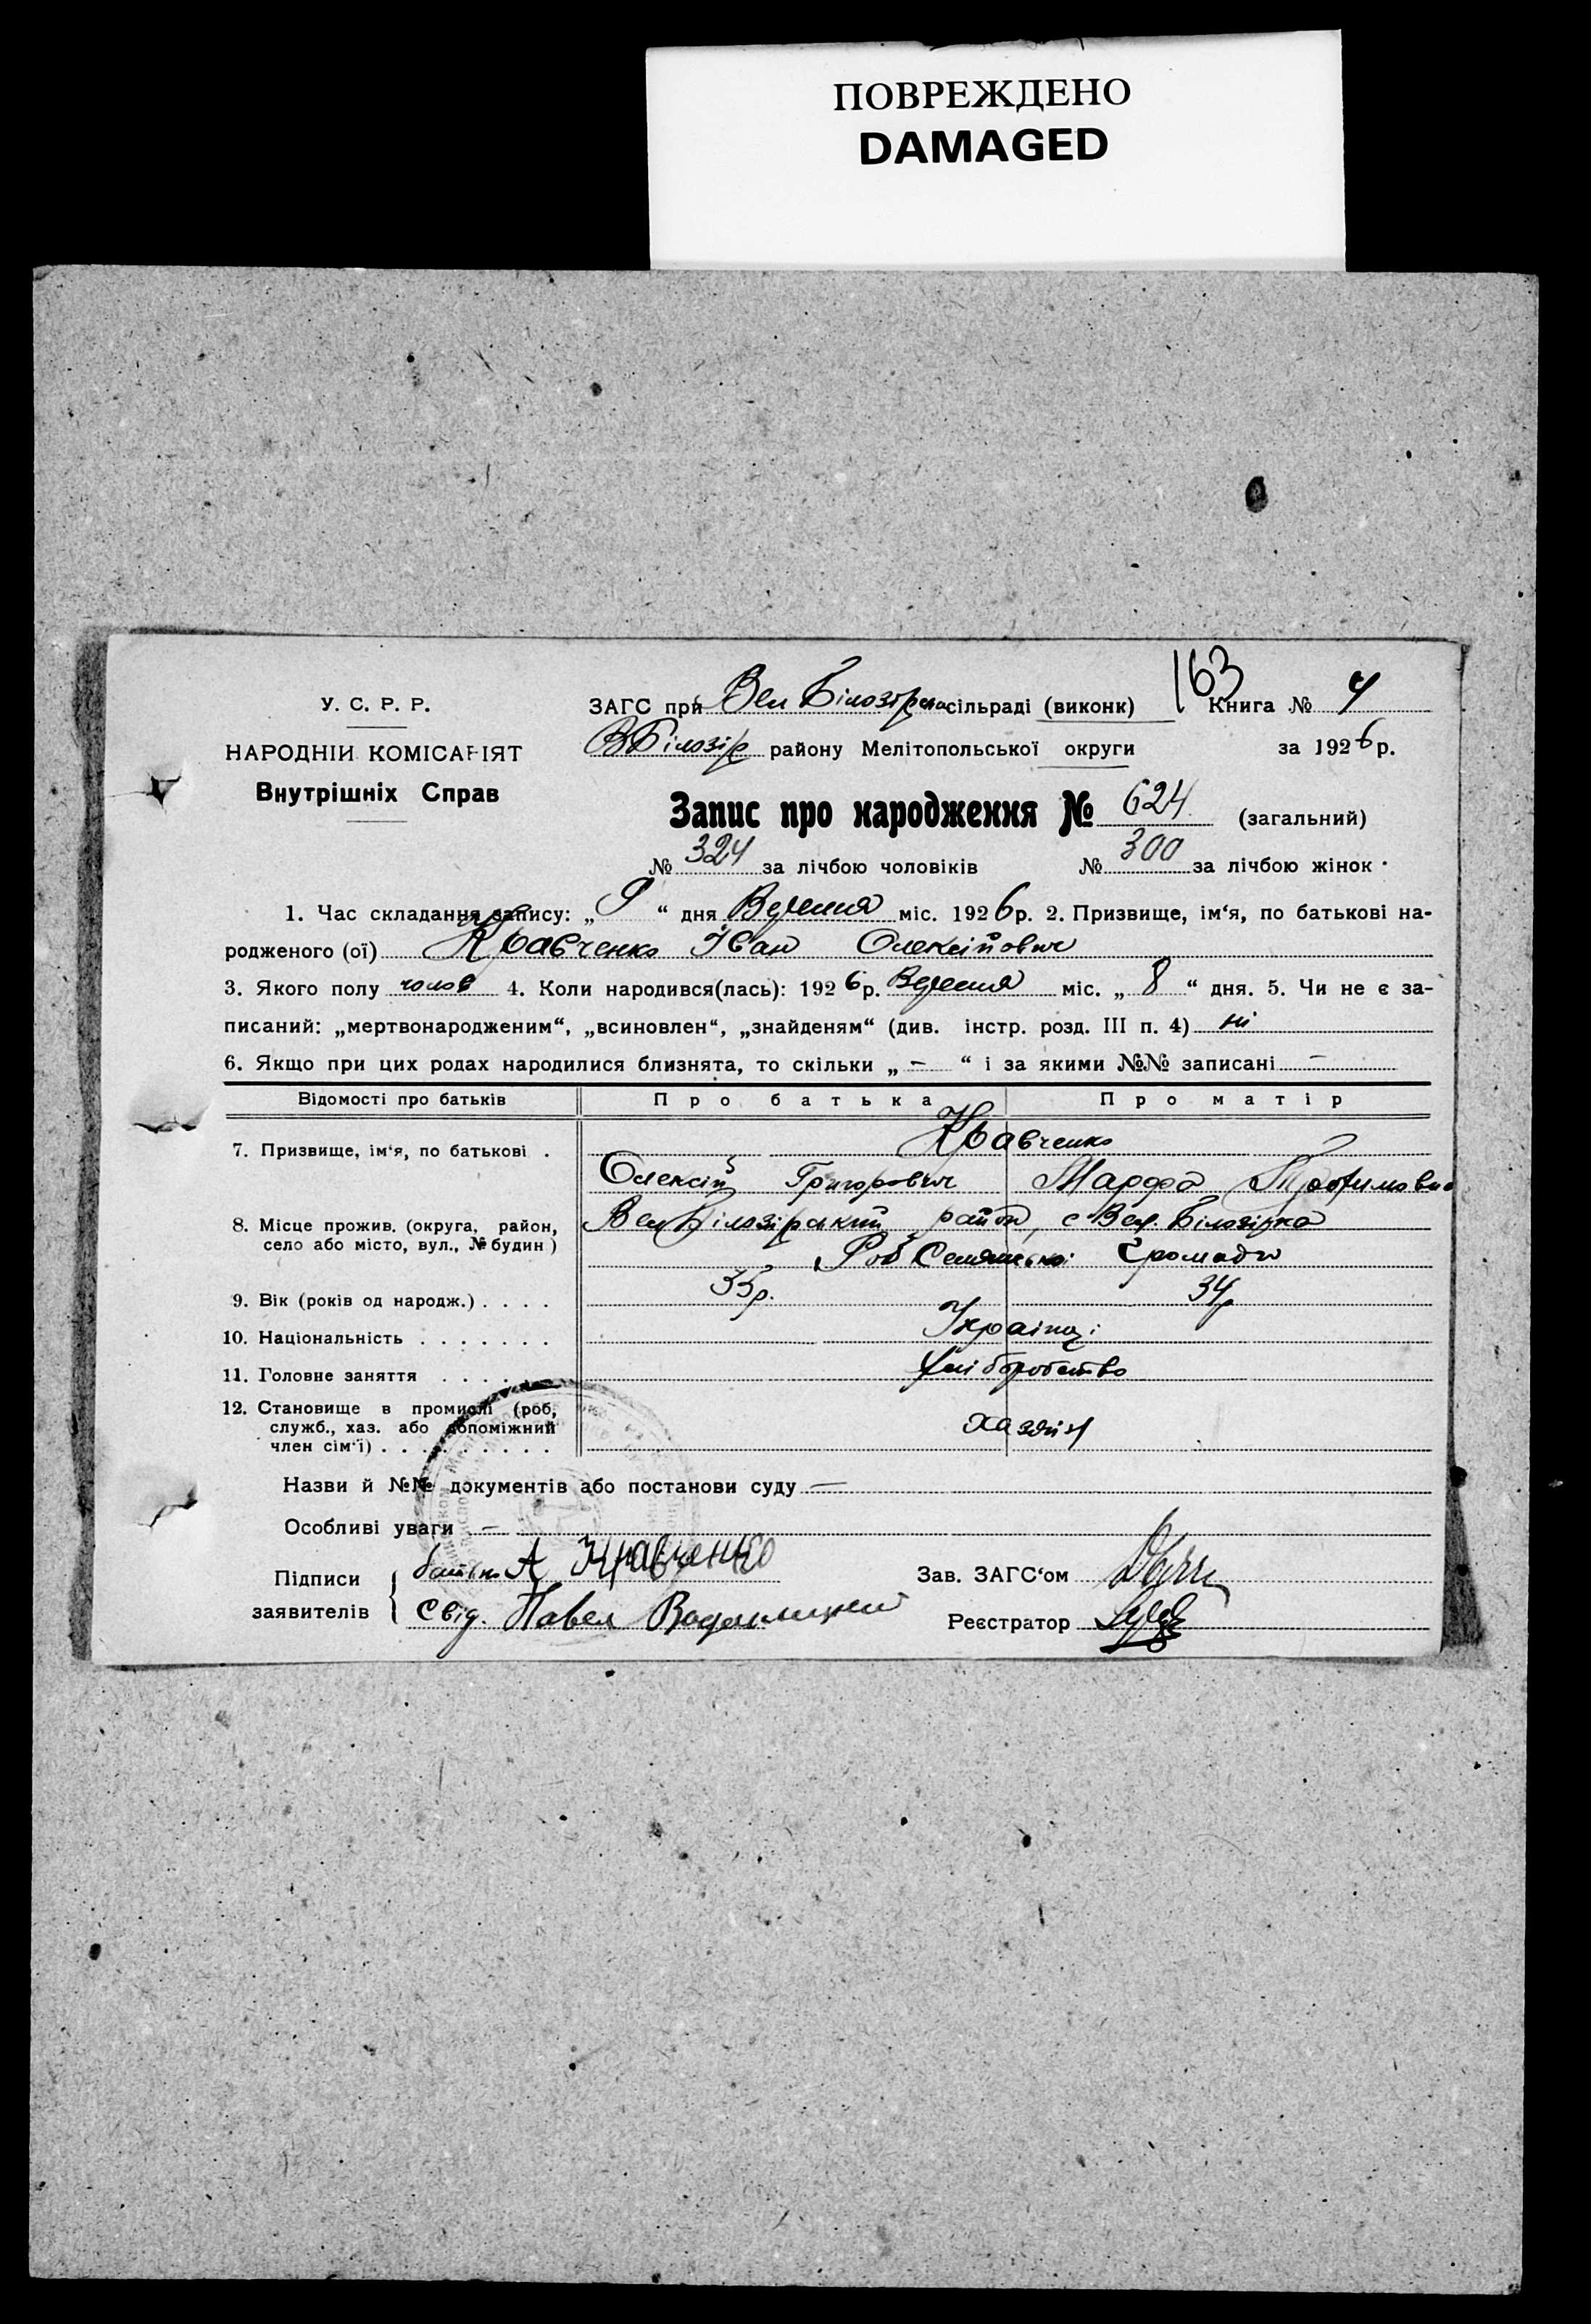 ПОВРЕЖДЕНО
DAMAGED
163
У. С. Р. Р.
ЗАГС при Вел Білозірська сільраді (виконк) Книга № 4
НАРОДНІИ КОМІСАРІЯТ
ВБілозір району Мелітопольської округи за 1926р.
Внутрішніх Справ
Запис про народження № 624 (загальний)
№ 324 за лічбою чоловіків № 300 за лічбою жінок
1. Час складання запису: „ 9 “ дня Вересня міс. 1926р. 2. Призвище, ім‘я, по батькові на-
родженого (ої) Кравченко Іван Олексійович
3. Якого полу чолов 4. Коли народився(лась): 1926р. Вересня міс. „ 8 “ дня. 5. Чи не є за-
писаний: „мертвонародженим“, „всиновлен“, „знайденям“ (див. інстр. розд. III п. 4) ні
6. Якщо при цих родах народилися близнята, то скільки „ — “ і за якими №№ записані —
Відомості про батьків Про батька Про матір
7. Призвище, ім‘я, по батькові . Кравченко
Олексій Григорович Марфа Трофимовна
8. Місце прожив. (округа, район, Вел Білозірський район, с Вел. Білозірка
село або місто, вул., № будин) Роб Селянської Громади
9. Вік (років од народж.) . . . . 35р. 34р
10. Національність . . . . . . . Українці
11. Головне заняття . . . . . хліборобство
12. Становище в промислі (роб,
служб., хаз. або допоміжний хазяїн
член сім‘ї) . . . . . . . . .
Назви й №№ документів або постанови суду —
Особливі уваги —
Підписи батько А Кравченко Зав. ЗАГС‘ом
заявителів Свід. Павел Реєстратор